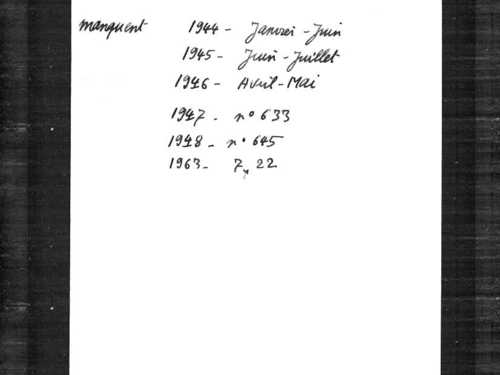 manquent 1944 - Janvier - Juin
1945 - Juin - Juillet
1946 - Avril - Mai
1947 - n° 633
1948 - n° 645
1963 - 7, 22